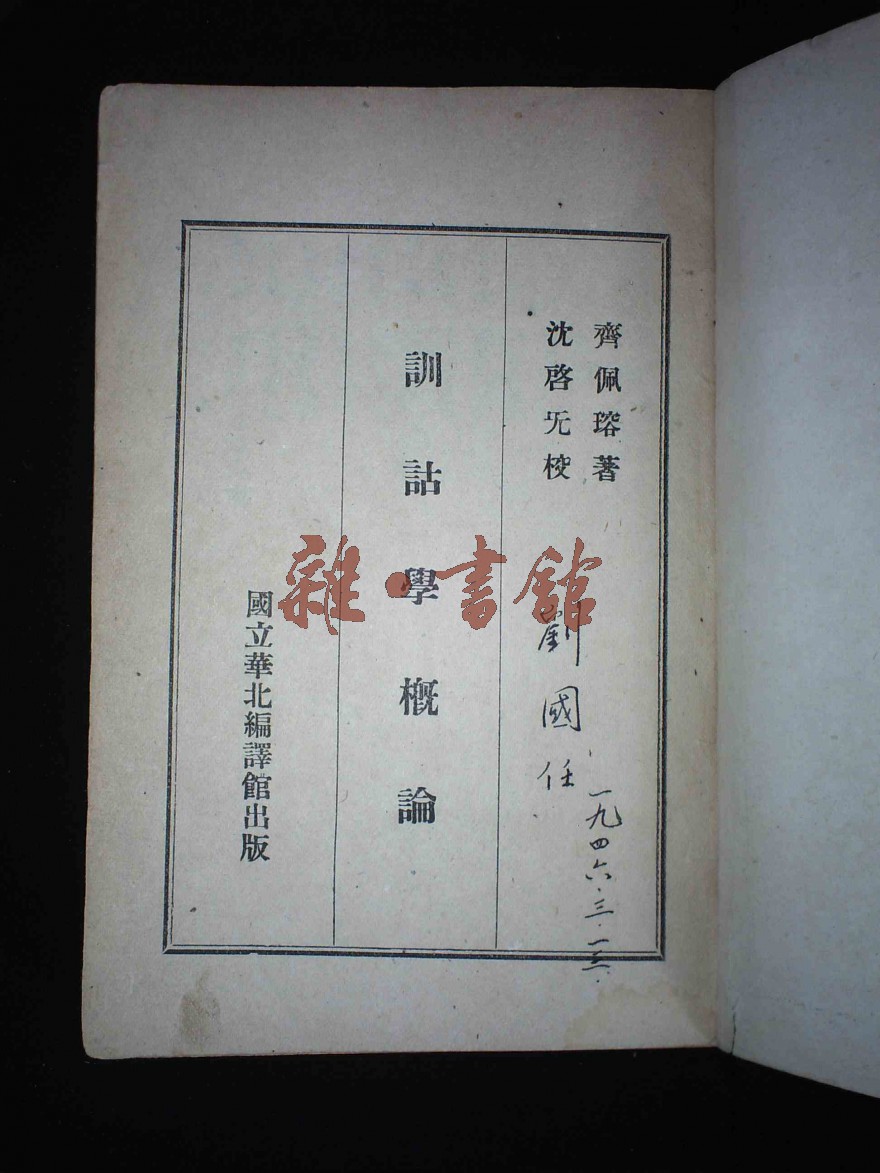 齊佩瑢著
沈啓旡校
劉國任
一九四六.三.一三.
訓詁學概論
國立華北編譯館出版
雜·書館